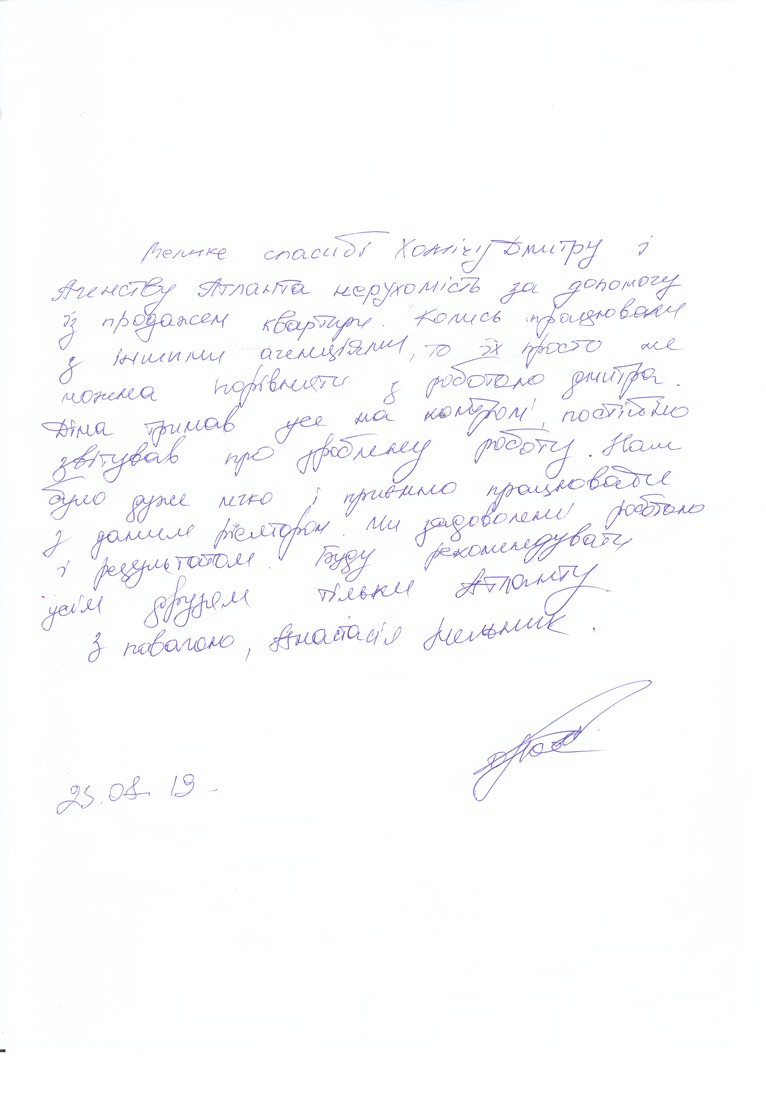 Велике спасибі Хомічу Дмитру і
Агенству Атланта нерухомість за допомогу
із продажем квартири. Колись працювали
з іншими агенціями, то їх просто не
можна порівняти з роботою Дмитра.
Діма тримав усе на контролі, постійно
звітував про зроблену роботу. Нам
було дуже легко і приємно працювати
з даним рієлтором. Ми задоволені роботою
і результатом. Буду рекомендувати
усім друзям тільки Атланту.
З повагою, Анастасія Мельник.
25.08.19